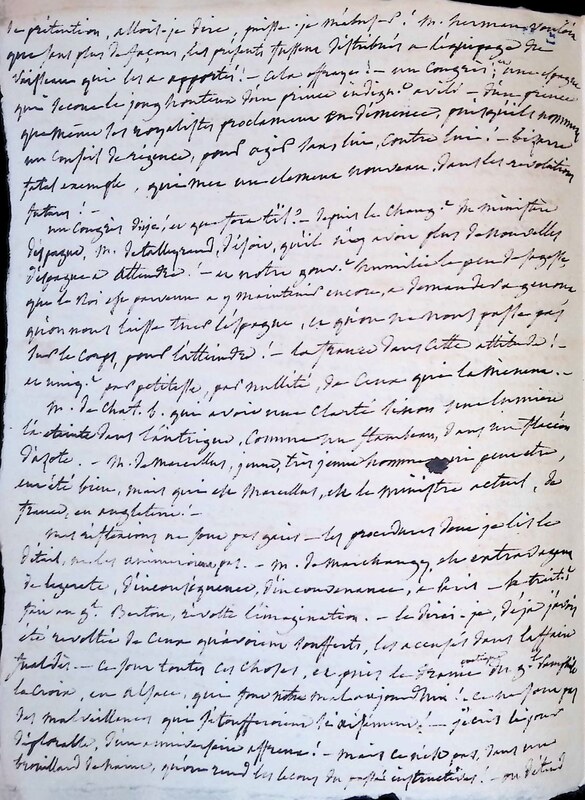 de prétention, allois-je dire, puisse-je m'abuser! M. herman voulois
que sans plus de façons, les présents fussent distribués à l'équipage du
vaisseau qui les a apportés! - cela effraye! - un Congrès! une espagne
qui secoue le joug honteux d'un prince indigne avili - d'un prince
que même les royalistes proclament en démence, puisqu'ils nomment
un Conseil de régence, pour agir sans lui, contre lui! - bizarre
fatal exemple, qui met un élément nouveau, dans les révolutions
futures! -
un Congrès déjà, et que fera t'il? - depuis le chang.t de ministère
d'espagne, M. de tallegrand, disoit, qu'il n'y avoit plus de nouvelles
d'espagne à attendre. - et notre gouv.t humilié le peu de sagesse,
que le Roi est parvenu à y maintenir encore, a demandé à genoux
qu'on nous laisse tuer l'espagne, et qu'on ne nous passe pas
sur le Corps, pour l'atteindre! - la france dans cette attitude! -
et uniq.t par petitesse, par nullité, de Ceux qui la mènent. -
M. de Chat. b. qui avoit une Clarté sinon une lumière
l'a éteinte dans l'intrigue, Comme un flambeau, dans un flacon
d'azote. - M. de Marcellus, jeune, très jeune homme qui peut etre,
eut été bien, mais qui est Marcellus, est le ministre actuel, de
france, en angleterre! -
mes réflexions ne sont pas gaies - les procédures dont je lis le
détail, ne les animeront pas. - M. de Marchangy, est extravagant
de légereté, d'inconséquence, d'inconvenance, à Paris - le traitem.t
fait au g.l Berton, révolte l'imagination. - le dirai-je, déjà j'avois
été révoltée de Ceux qu'avoient soufferts, les accusés dans l'affaire
fualdès. - Ce sont toutes ces choses, et puis le
la Croix, en alsace, que font notre mal aujourdhui! ce ne sont pas
des malveillances que l'étoufferoient si aisément! - j'écris le jour
déplorable, d'un anniversaire affreux! - mais ce n'est pas, dans un
brouillard de haine, qu'on rend les leçons du passé instructives! - on détend